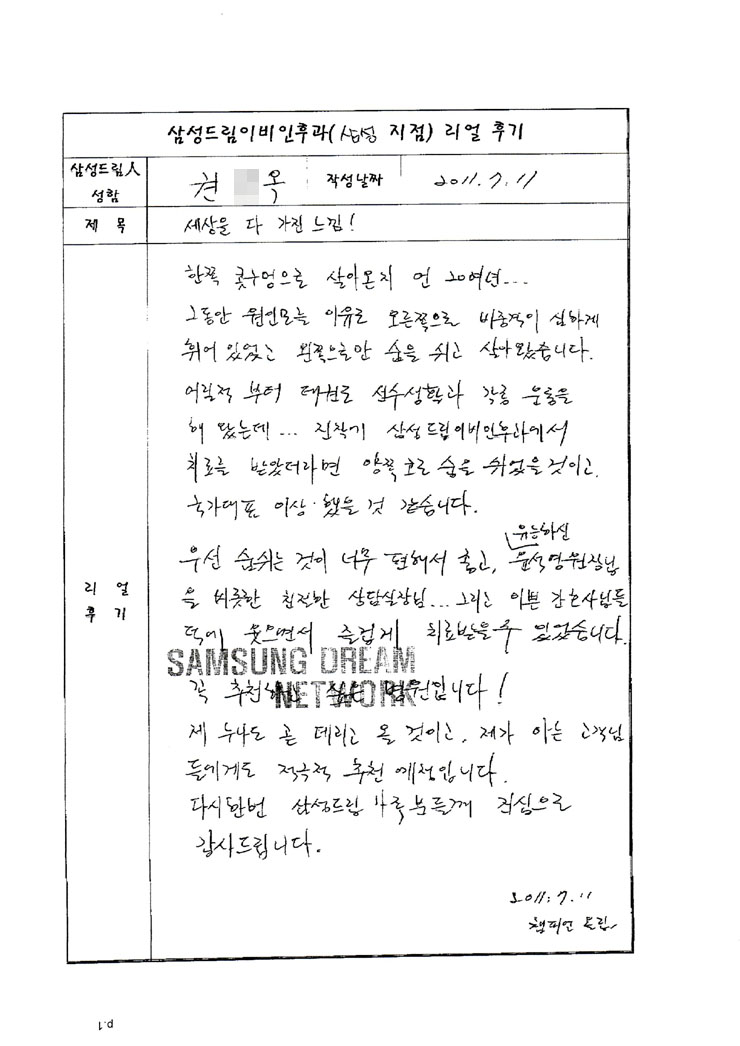 삼성드림이비인후과(삼성 지점) 리얼 후기
삼성드림人
성함
현 옥
작성날짜
2011. 7. 11
제 목
세상을 다 가진 느낌!
한쪽 콧구멍으로 살아온지 언 20여년...
그동안 원인모를 이유로 오른쪽으로 비중격이 심하게
휘어 있었고 왼쪽으로만 숨을 쉬고 살아왔습니다.
어릴적 부터 태권도 선수생활과 각종 운동을
해 왔는데... 진작에 삼성드림이비인후과에서
치료를 받았더라면 양쪽 코로 숨을 쉬었을 것이고.
국가대표 이상 했을 것 같습니다.
유능하신
우선 숨쉬는 것이 너무 편해서 좋고, 윤석영원장님
을 비롯한 친절한 상담실장님... 그리고 이쁜 간호사님들
덕에 웃으면서 즐겁게 치료받을 수 있었습니다.
SAMSUNG DREAM
NETWORK
꼭 추천하고 싶은 병원입니다!
제 누나도 곧 데리고 올 것이고, 제가 아는 고객님
들에게도 적극적 추천 예정입니다.
다시한번 삼성드림 가족분들께 진심으로
감사드립니다.
리 얼
후 기
2011. 7. 11
챔피언 드림
p.1